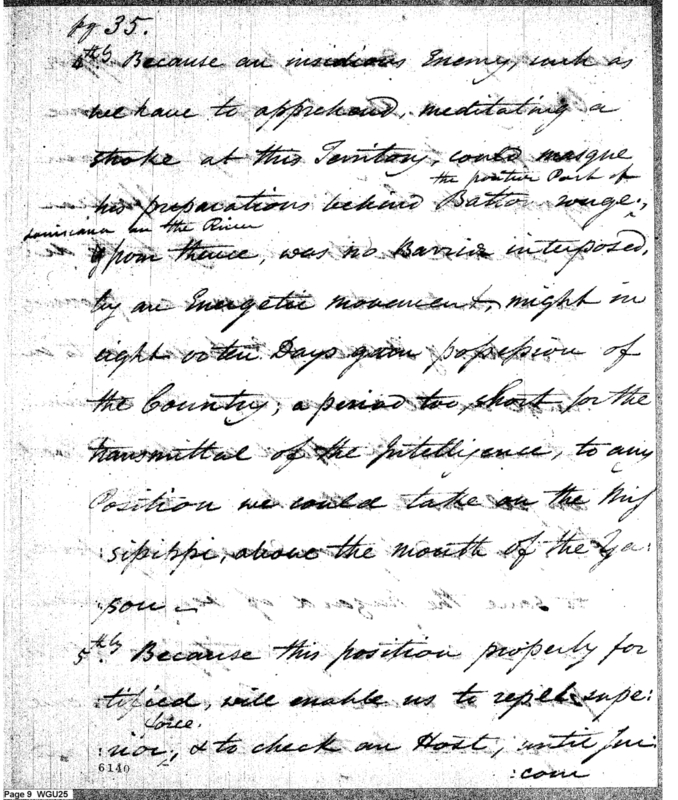 pg 35.
4thly Because an insidious Enemy, such as
we have to apprehend, meditating a
stroke at this Territory, could masque
the positive Part of
his preparations behind Batton rouge,
Louisiana on the River
& from thence, was no Barrier interposed,
by an Energetic movement, might in
eight or ten Days gain possession of
the Country; a period too short for the
transmittal of the Intelligence, to any
Position we could take on the Mis
:sisippi, above the mouth of the Ya:
:sou —
5thly Because this position properly for
tified, will enable us to repel supe:
force.
:rior, & to check an Host, until Suc
:cour
6140
Page 9 WGU25